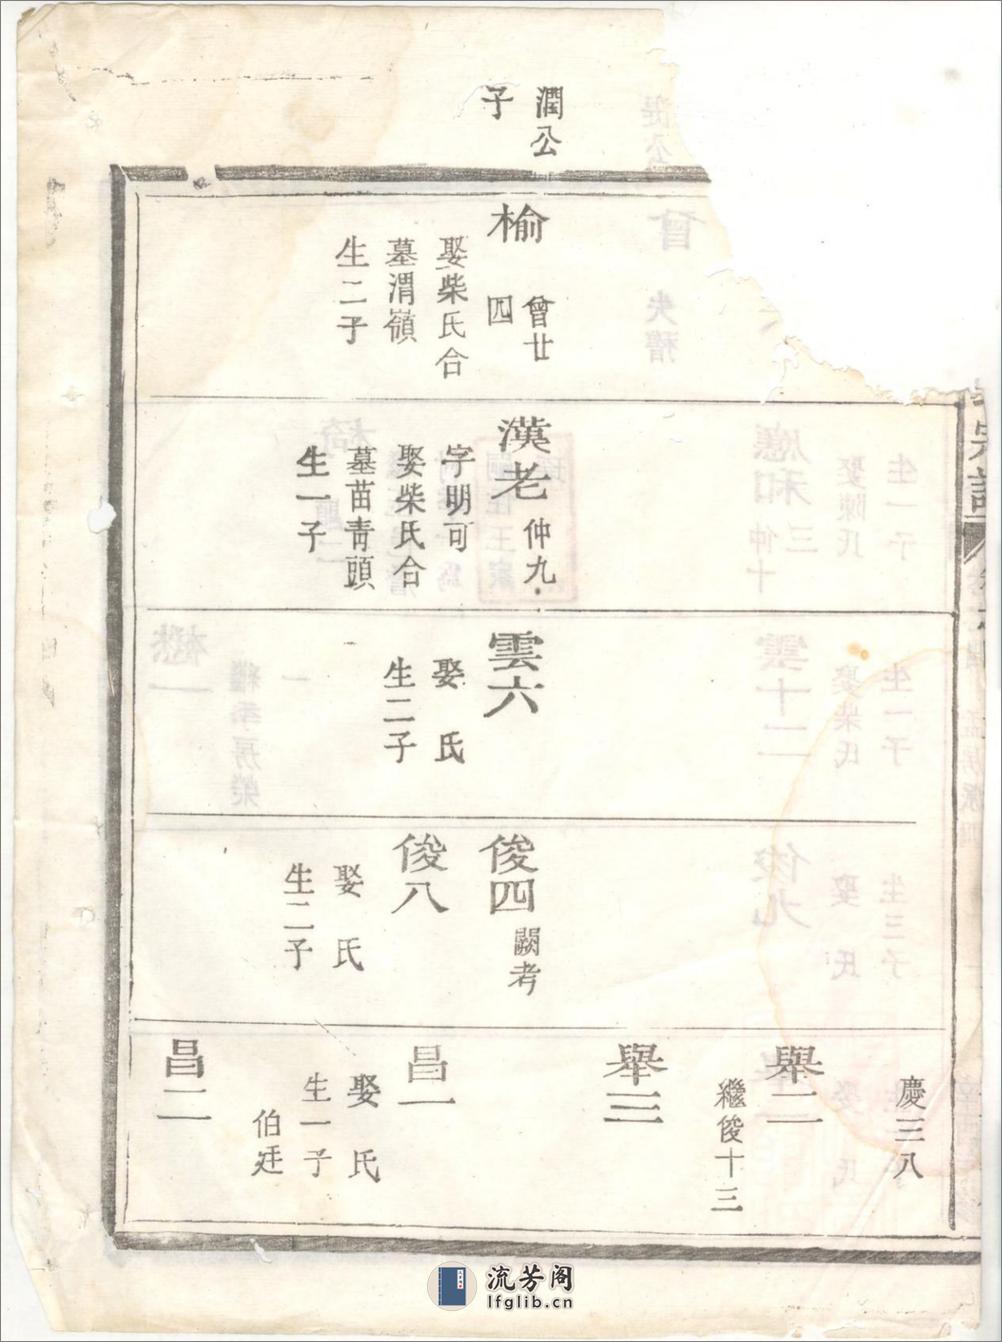 潤公
子
榆
曾廿
四
娶柴氏合
墓渭嶺
生二子
漢老
仲九
字明可
娶柴氏合
墓苗靑頭
生一子
雲六
娶　氏
生二子
俊四
闕考
俊八
娶　氏
生二子
慶三八
舉二
繼俊十三
舉三
昌一
娶　氏
生一子
伯廷
昌二
流芳阁
lfglib.cn